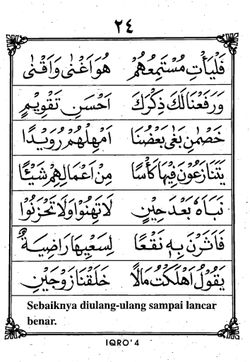 ٢٤
فَلْيَأْتِ مُسْتَمِعُهُمْ هُوَ اَغْنٰى وَاَقْنٰى
وَرَفَعْنَا لَكَ ذِكْرَكَ اَحْسَنِ تَقْوِيْمٍ
خَصْمٰنِ بَغٰى بَعْضُنَا اَمْهِلْهُمْ رُوَيْدًا
يَتَنَازَعُوْنَ فِيْهَا كَأْسًا مِنْ اَعْمَالِهِمْ شَيْـًٔا
نَبَاَهٗ بَعْدَ حِيْنٍ لَا تَهِنُوْا وَلَا تَحْزَنُوْا
فَاَثَرْنَ بِهٖ نَقْعًا لِسَعْيِهَا رَاضِيَةٌ
يَقُوْلُ اَهْلَكْتُ مَالًا خَلَقْنَا زَوْجَيْنِ
Sebaiknya diulang-ulang sampai lancar
benar.
IQRO' 4